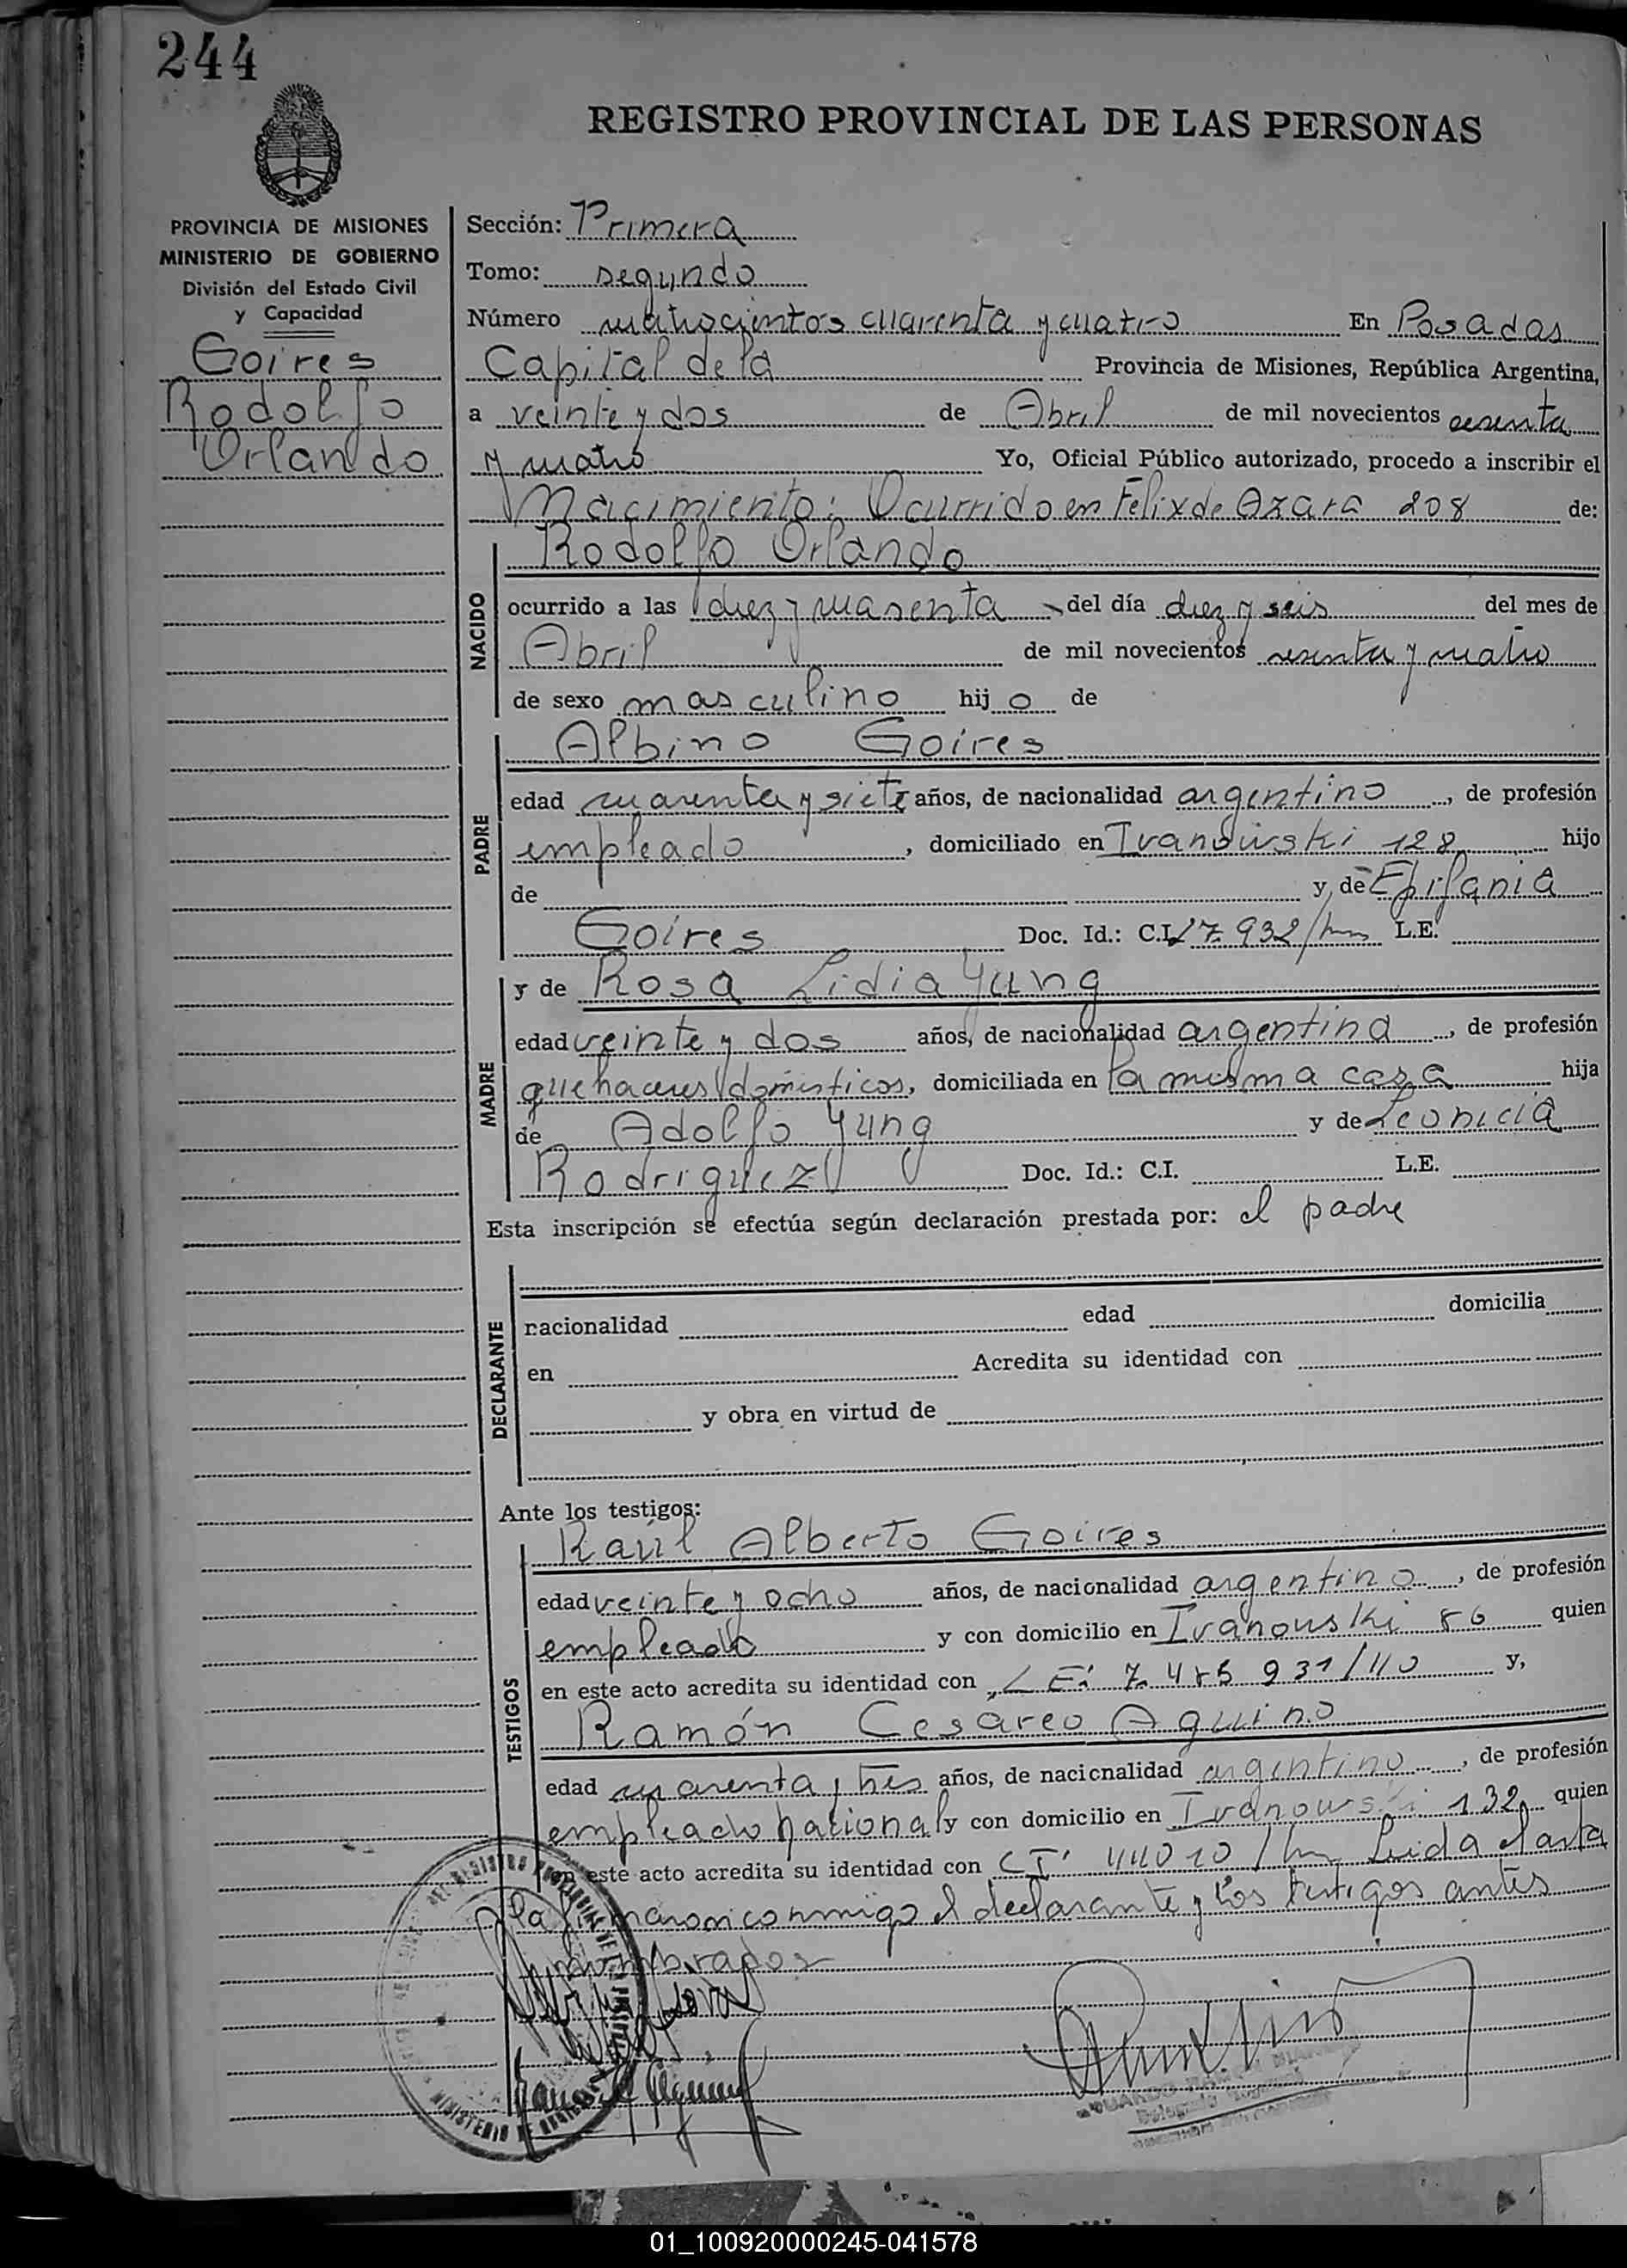 244
REGISTRO PROVINCIAL DE LAS PERSONAS
PROVINCIA DE MISIONES
MINISTERIO DE GOBIERNO
División del Estado Civil
y Capacidad
Goires
Rodolfo
Orlando
Sección: Primera
Tomo: segundo
Número cuatrocientos cuarenta y cuatro En Posadas
Capital de la Provincia de Misiones, República Argentina,
a veinte y dos de Abril de mil novecientos sesenta
y cuatro Yo, Oficial Público autorizado, procedo a inscribir el
Nacimiento: Ocurrido en Felix de Azara 208 de:
NACIDO
Rodolfo Orlando
ocurrido a las diez y cuarenta del día diez y seis del mes de
Abril de mil novecientos sesenta y cuatro
de sexo masculino hijo de
PADRE
Albino Goires
edad cuarenta y siete años, de nacionalidad argentino, de profesión
empleado, domiciliado en Ivanowski 128 hijo
de y de Epifania
Goires Doc. Id.: C.I. 17.932/ L.E.
MADRE
y de Rosa Lidia Yung
edad veinte y dos años, de nacionalidad argentina, de profesión
quehaceres domésticos, domiciliada en la misma casa hija
de Adolfo Yung y de Leonicia
Rodriguez Doc. Id.: C.I. L.E.
Esta inscripción se efectúa según declaración prestada por: el padre
DECLARANTE
nacionalidad edad domicilia
en Acredita su identidad con
y obra en virtud de
Ante los testigos:
TESTIGOS
Raúl Alberto Goires
edad veinte y ocho años, de nacionalidad argentino, de profesión
empleado y con domicilio en Ivanowski 86 quien
en este acto acredita su identidad con L E: 7.485 931/110 y,
Ramón Cesareo Aquino
edad cuarenta y tres años, de nacionalidad argentino, de profesión
empleado nacional y con domicilio en Ivanowski 132 quien
en este acto acredita su identidad con CI: 44010/ Leida el acta
la firmaron conmigo el declarante y los testigos antes
nombrados
01_100920000245-041578